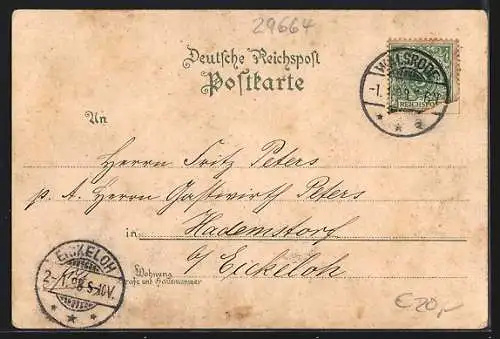 29664
Deutsche Reichspost
Postkarte
WALSRODE
REICHSPOST
An
Herrn Fritz Peters
p. A. Herrn Gastwirth Peters
in Hademstorf
b/ Eickeloh
EICKELOH
Wohnung
(Straße und Hausnummer)
€ 20,-